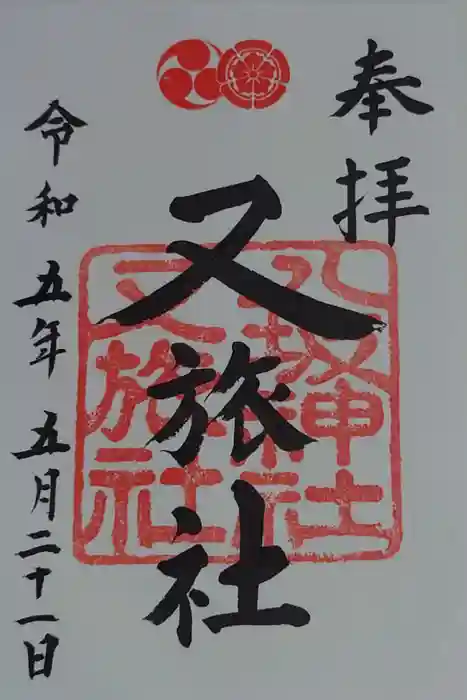 奉拝
八坂神社
又旅社
又旅社
令和五年五月二十一日